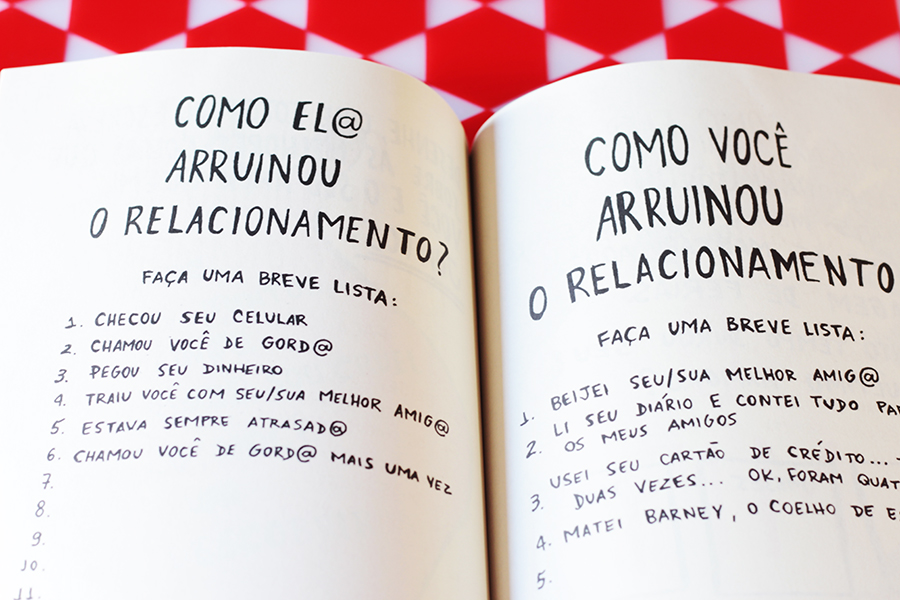 COMO EL@
ARRUINOU
O RELACIONAMENTO?
FAÇA UMA BREVE LISTA:
1. CHECOU SEU CELULAR
2. CHAMOU VOCÊ DE GORD@
3. PEGOU SEU DINHEIRO
4. TRAIU VOCÊ COM SEU/SUA MELHOR AMIG@
5. ESTAVA SEMPRE ATRASAD@
6. CHAMOU VOCÊ DE GORD@ MAIS UMA VEZ
7.
8.
9.
10.
11.
COMO VOCÊ
ARRUINOU
O RELACIONAMENTO
FAÇA UMA BREVE LISTA:
1. BEIJEI SEU/SUA MELHOR AMIG@
2. LI SEU DIÁRIO E CONTEI TUDO
OS MEUS AMIGOS
3. USEI SEU CARTÃO DE CRÉDITO...
DUAS VEZES... OK, FORAM
4. MATEI BARNEY, O COELHO DE
5.